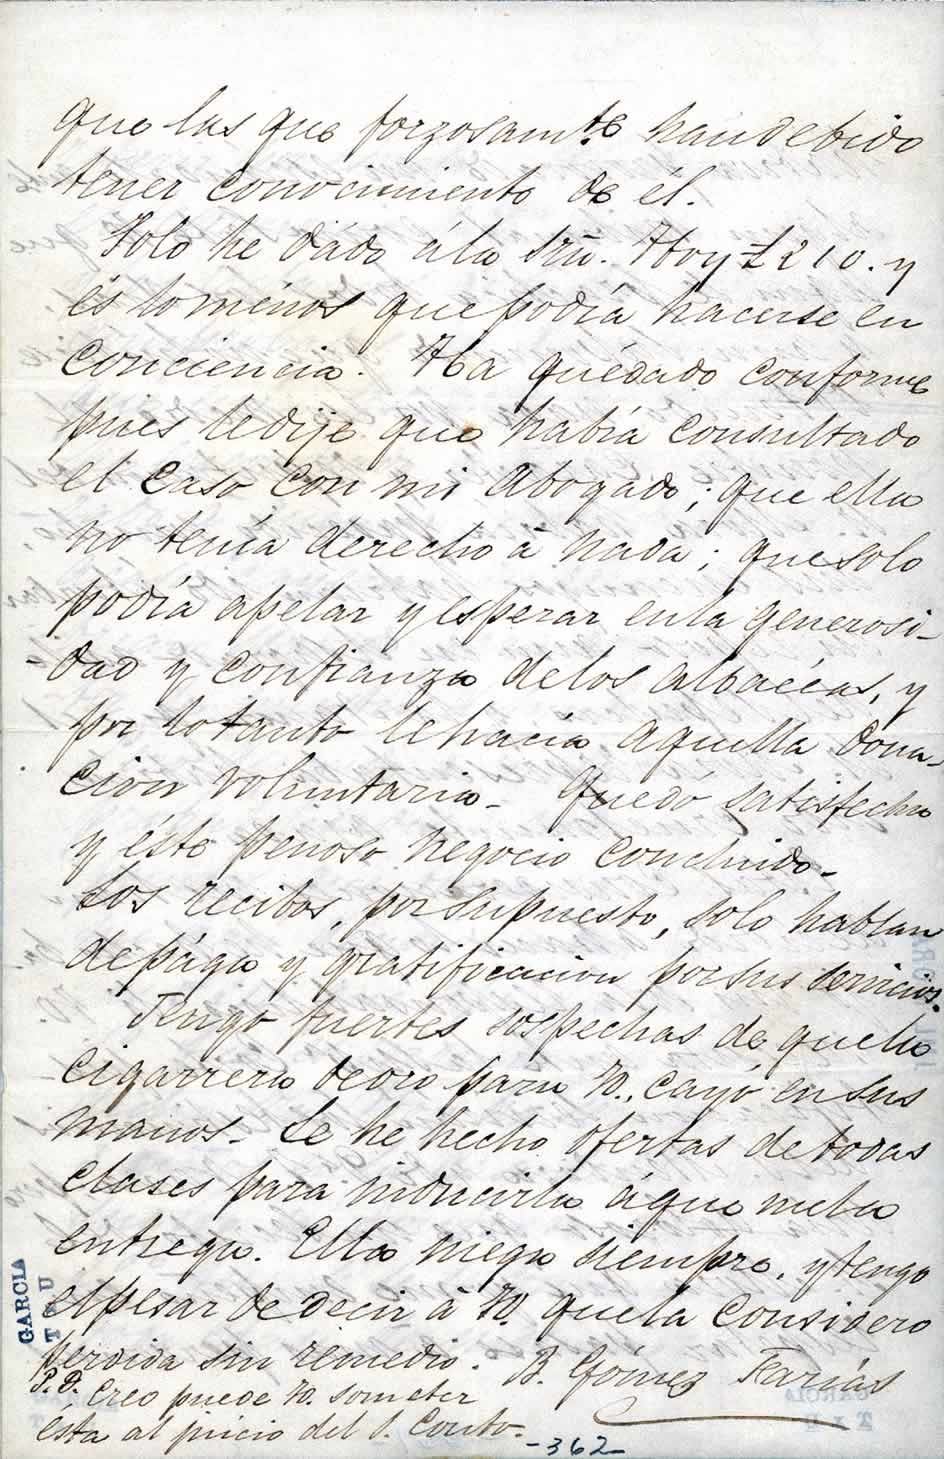 que las que forzosamte han debido
tener conocimiento de él.
Solo he dádo á la Srã. Hoy £210. y
és lo ménos que podía hacerse en
conciencia. Ha quédado conforme
pues le dije que había consultado
el caso con mi abogado; que ella
no tenía derecho á nada; que solo
podía apelar y esperar en la generosi-
-dad y confianza de los albacéas, y
por lo tanto le hacía aquella dona-
cion voluntaria. Quedó satisfecha
y éste penoso negocio concluido.
Los recibos, por supuesto, solo hablan
de pága y gratificacion por sus servicios.
Tengo fuertes sospechas de que la
cigarrera de oro para V., cayó en sus
manos. Le he hecho ofertas de todas
clases para inducirla á que me la
entregu. Ella niega siempre, y tengo
el pesar de decir á V. que la considero
perdida sin remedio. B. Gómez Farías
P.D. Creo puede V. someter
ésta al juicio del S. Couto.
-362-
GARCIA